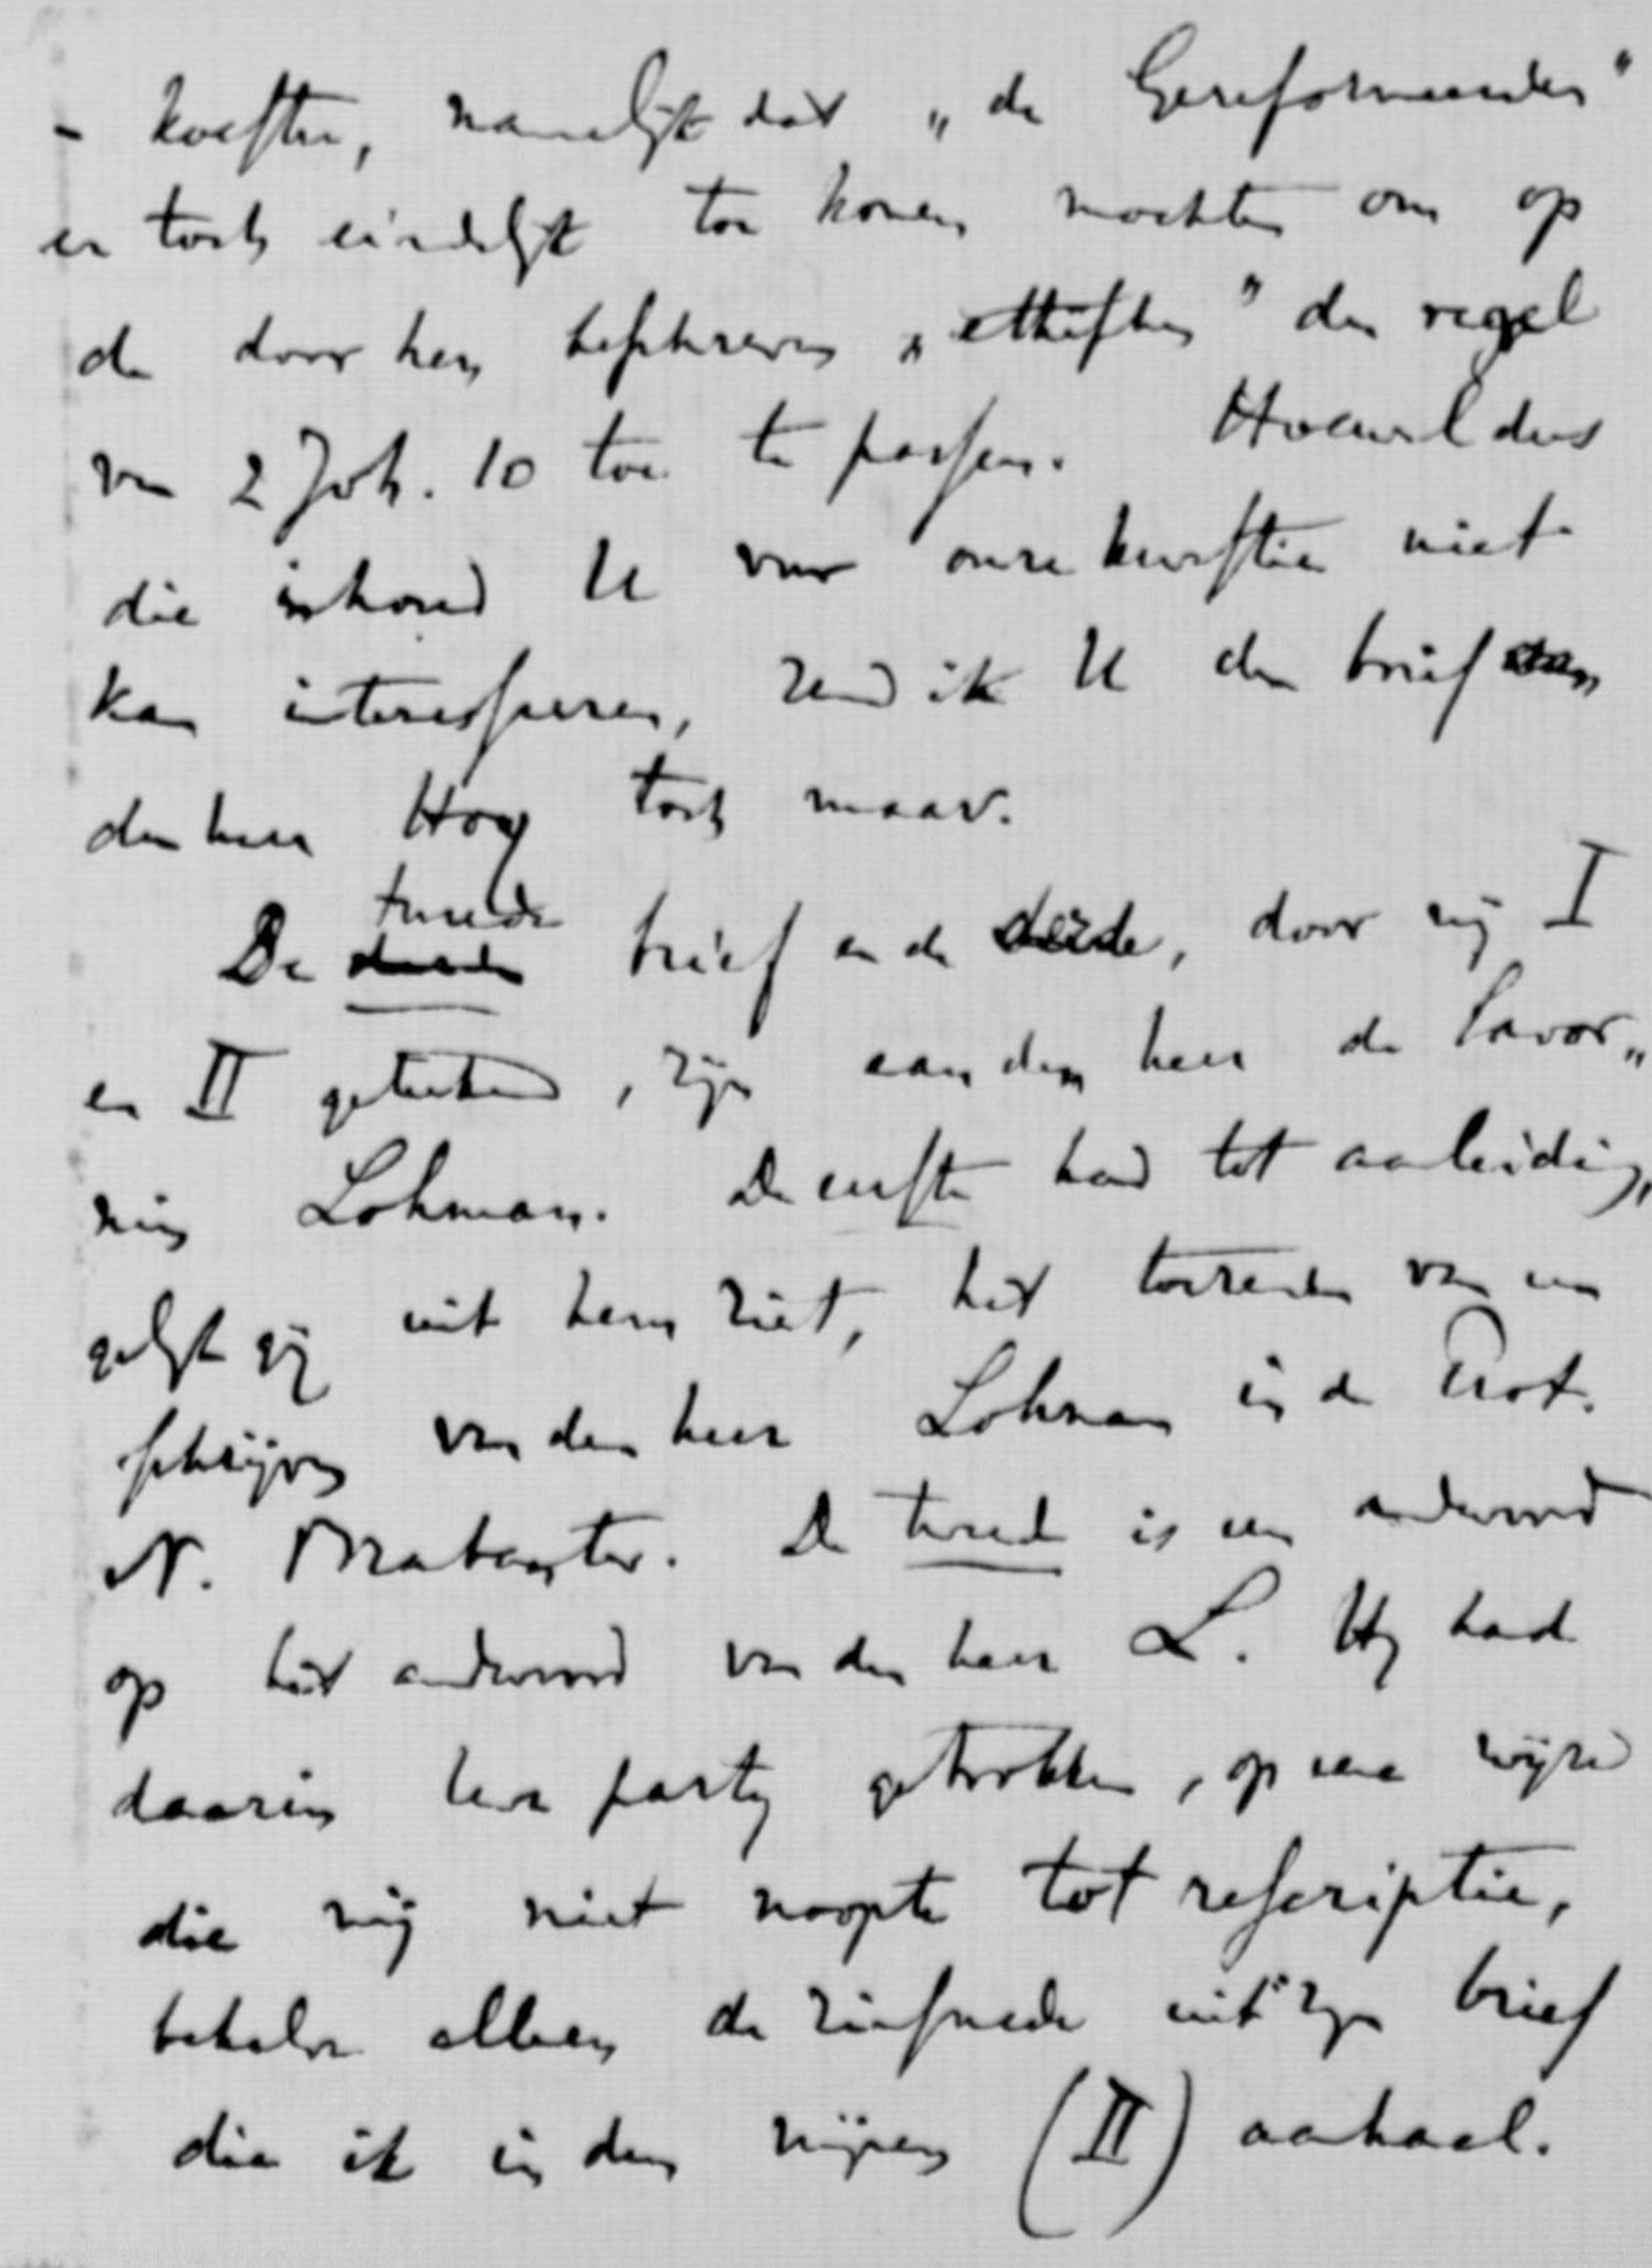 - koesten, namelijk dat „de Gereformeerden"
er toch eindelijk toe komen mochten om op
de door hen beschreven „ethischen" den regel
van 2 Joh. 10 toe te passen. Hoewel dus
die inhoud U voor onze kwestie niet
kan interesseren, zend ik U den brief aan
den heer Hoog toch maar.
De tweede brief en de derde, door mij I
en II getekend, zijn aan den heer de Savor„
nin Lohman. De eerste had tot aanleiding,
gelijk gij uit hem ziet, het toezenden van een
schrijven van den heer Lohman in de Prot.
N. Brabanter. De tweede is een antwoord
op het antwoord van den heer L. Hij had
daarin partij getrokken, op eene wijze
die mij niet noopte tot rescriptie,
behalve alleen de zinsnede uit zijn brief
die ik in den mijnen (II) aanhaal.